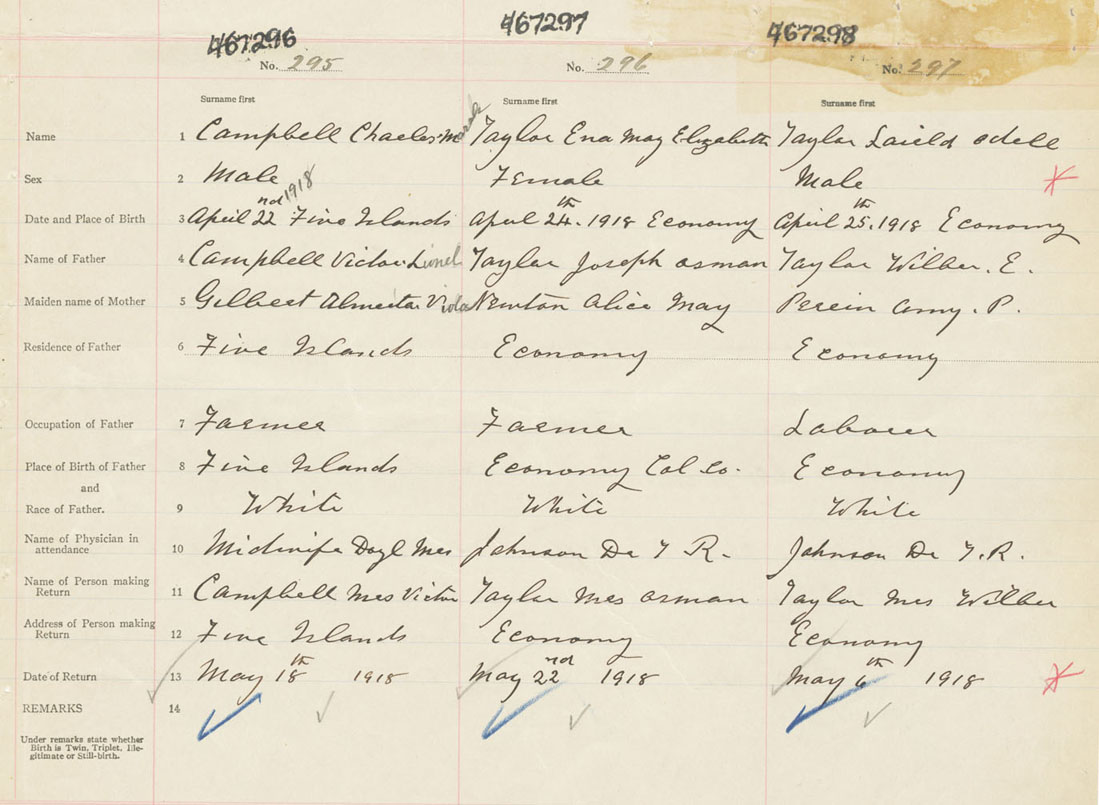 467296 467297 467298
No. 295 No. 296 No. 297
Surname first Surname first Surname first
Name 1 Campbell Charles Taylor Ena May Elizabeth Taylor Laield Odell
Sex 2 Male Female Male
Date and Place of Birth 3 April 22nd 1918 Five Islands April 24th. 1918 Economy April 25th. 1918 Economy
Name of Father 4 Campbell Victor Lionel Taylor Joseph Osman Taylor Wilber. E.
Maiden name of Mother 5 Gilbert Almeta Viola Newton Alice May Perrin Amy. P.
Residence of Father 6 Five Islands Economy Economy
Occupation of Father 7 Farmer Farmer Laborer
Place of Birth of Father 8 Five Islands Economy Col Co. Economy
and
Race of Father. 9 White White White
Name of Physician in
attendance 10 Midwife Doyl Mrs Johnson Dr T. R. Johnson Dr T. R.
Name of Person making
Return 11 Campbell Mrs Victor Taylor Mrs Osman Taylor Mrs Wilber
Address of Person making
Return 12 Five Islands Economy Economy
Date of Return 13 May 18th 1918 May 22nd 1918 May 6th 1918
REMARKS 14
Under remarks state whether
Birth is Twin, Triplet, Ille-
gitimate or Still-birth.